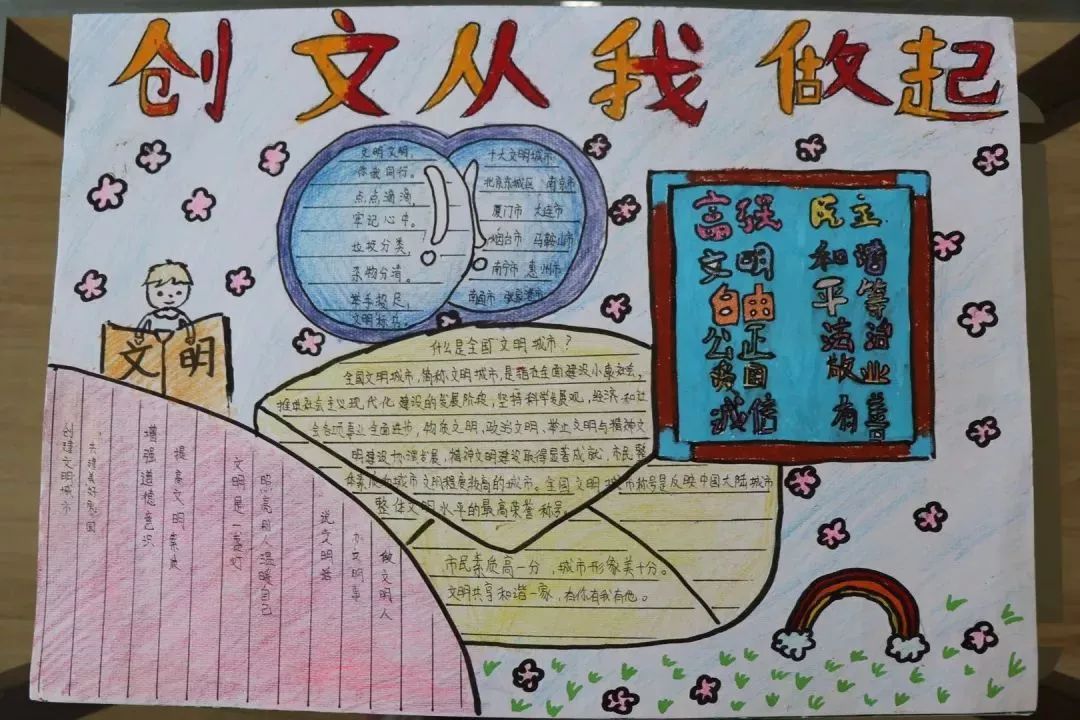 创文从我做起
文明文明,
伴我同行。
点点滴滴
牢记心中。
垃圾分类,
杂物分清。
举手投足,
文明标兵。
十大文明城市
北京东城区 南京市
厦门市 大连市
烟台市 马鞍山市
南宁市 惠州市
南通市 张家港市
富强 民主
文明 和谐
自由 平等
公正 法治
爱国 敬业
诚信 友善
文明
什么是全国文明城市?
全国文明城市,简称文明城市,是指在全面建设小康社会,
推进社会主义现代化建设的发展阶段,坚持科学发展观,经济和社
会各项事业全面进步,物质文明,政治文明,举止文明与精神文
明建设协调发展,精神文明建设取得显著成就,市民整
体素质和城市文明程度较高的城市。全国文明城市称号是反映中国大陆城市
整体文明水平的最高荣誉称号。
市民素质高一分,城市形象美十分。
文明共享和谐一家,有你有我有他。
做文明人
办文明事
说文明话
照亮别人温暖自己
文明是一盏灯
提高文明素质
增强道德意识
共建美好家园
创建文明城市